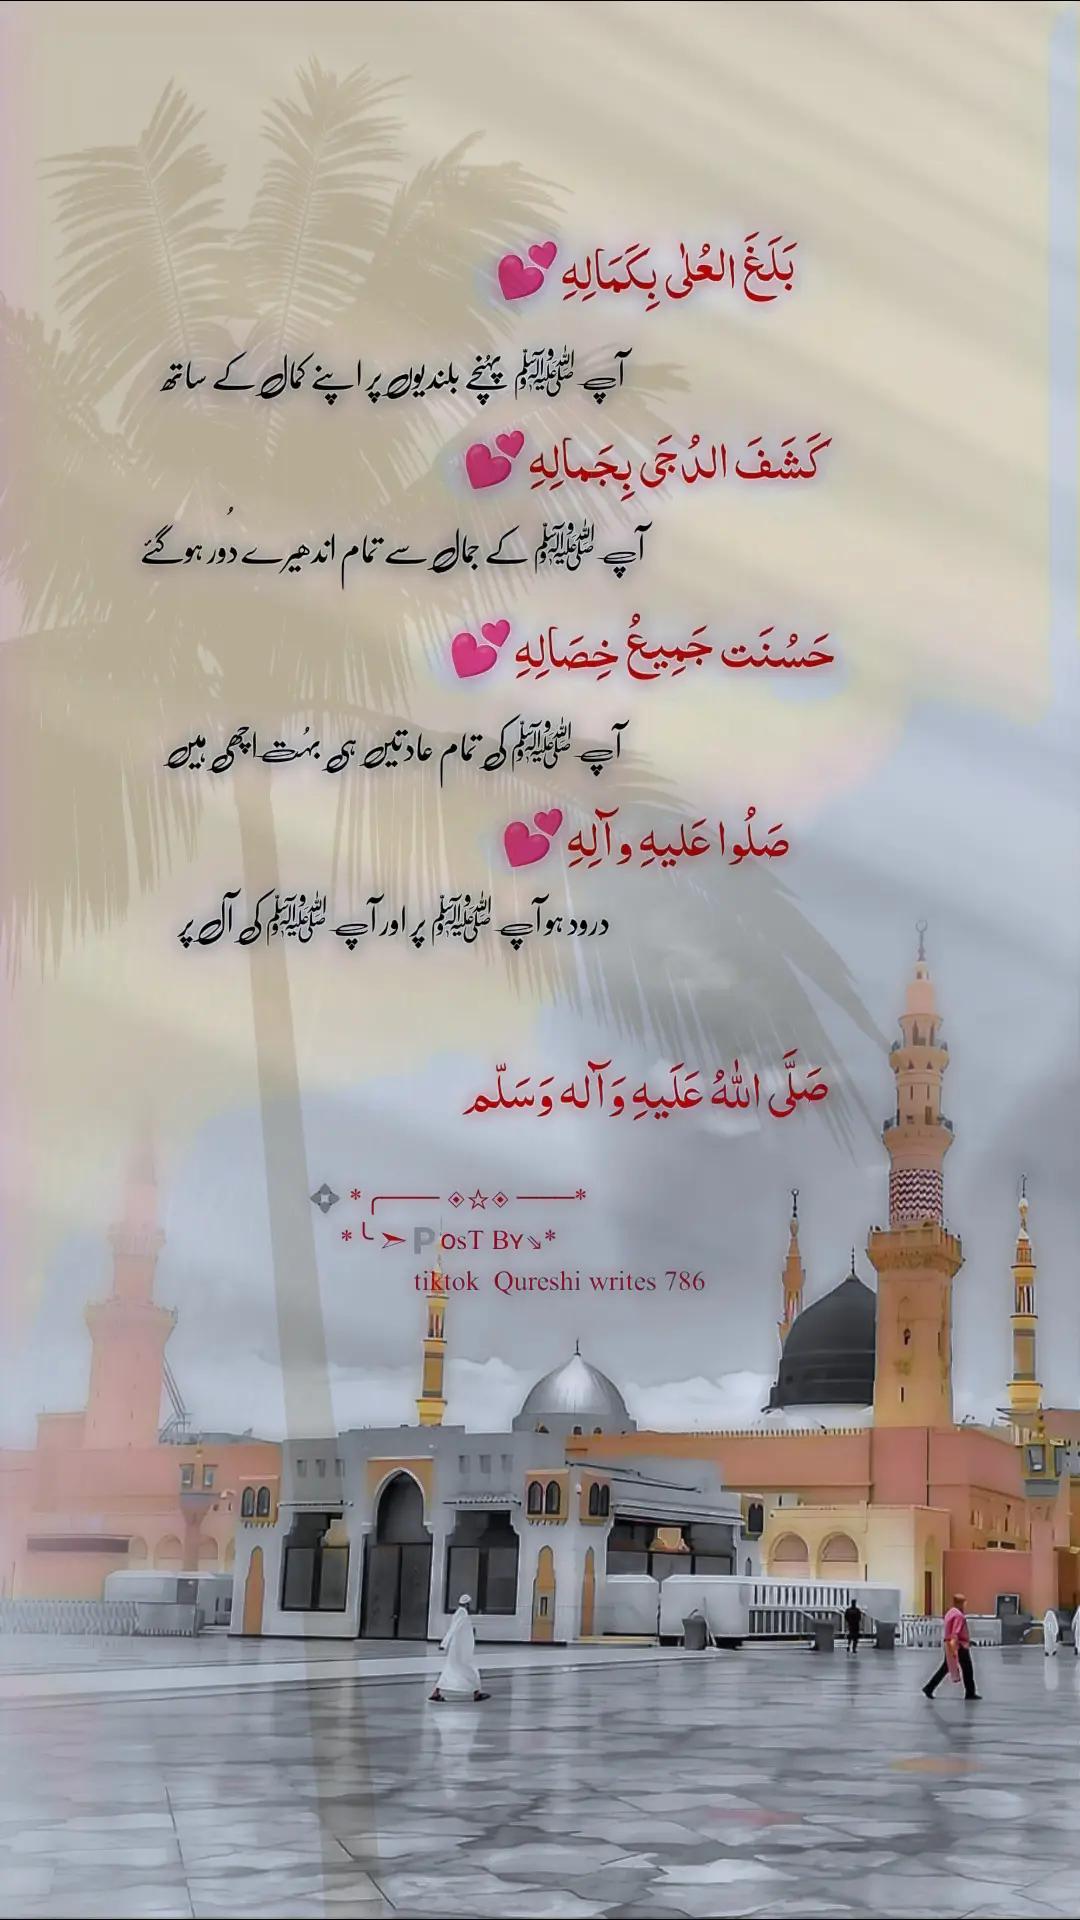 بَلَغَ العُلٰی بِکَمَالِهِ 💕
آپ ﷺ پہُنچے بلندیوں پر اپنے کمال کے ساتھ
کَشَفَ الدُجَی بِجَمالِهِ 💕
آپ ﷺ کے جمال سے تمام اندھیرے دُور ہوگئے
حَسُنَت جَمِیعُ خِصَالِهِ 💕
آپ ﷺ کی تمام عادتیں ہی بہُت اچھی ہیں
صَلُوا عَلیهِ وآلِهِ 💕
درود ہو آپ ﷺ پر اور آپ ﷺ کی آل پر
صَلَّی اللهُ عَلَیهِ وَآله وَسَلّم
* ╭─── ◈☆◈ ───*
* ╰ ➢ PosT By⇘*
tiktok Qureshi writes 786